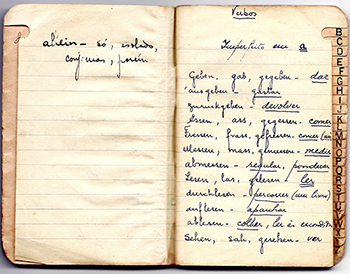 allein - só, isolado,
conj. mas, porém
Verbos
Imperfeito em a
Geben, gab, gegeben - dar
ausgeben - gastar
zurückgeben - devolver
Essen, ass, gegessen - comer
Fressen, frass, gefressen - comer
Messen, mass, gemessen - medir
abmessen - regular, ponderar
Lesen, las, gelesen - ler
durchlesen - percorrer (um livro)
auflesen - apanhar
ablesen - colher, ler
Sehen, sah, gesehen - ver
B
C
D
E
F
G
H
I
J
K
L
M
N
O
P
Q
R
S
T
U
V
W